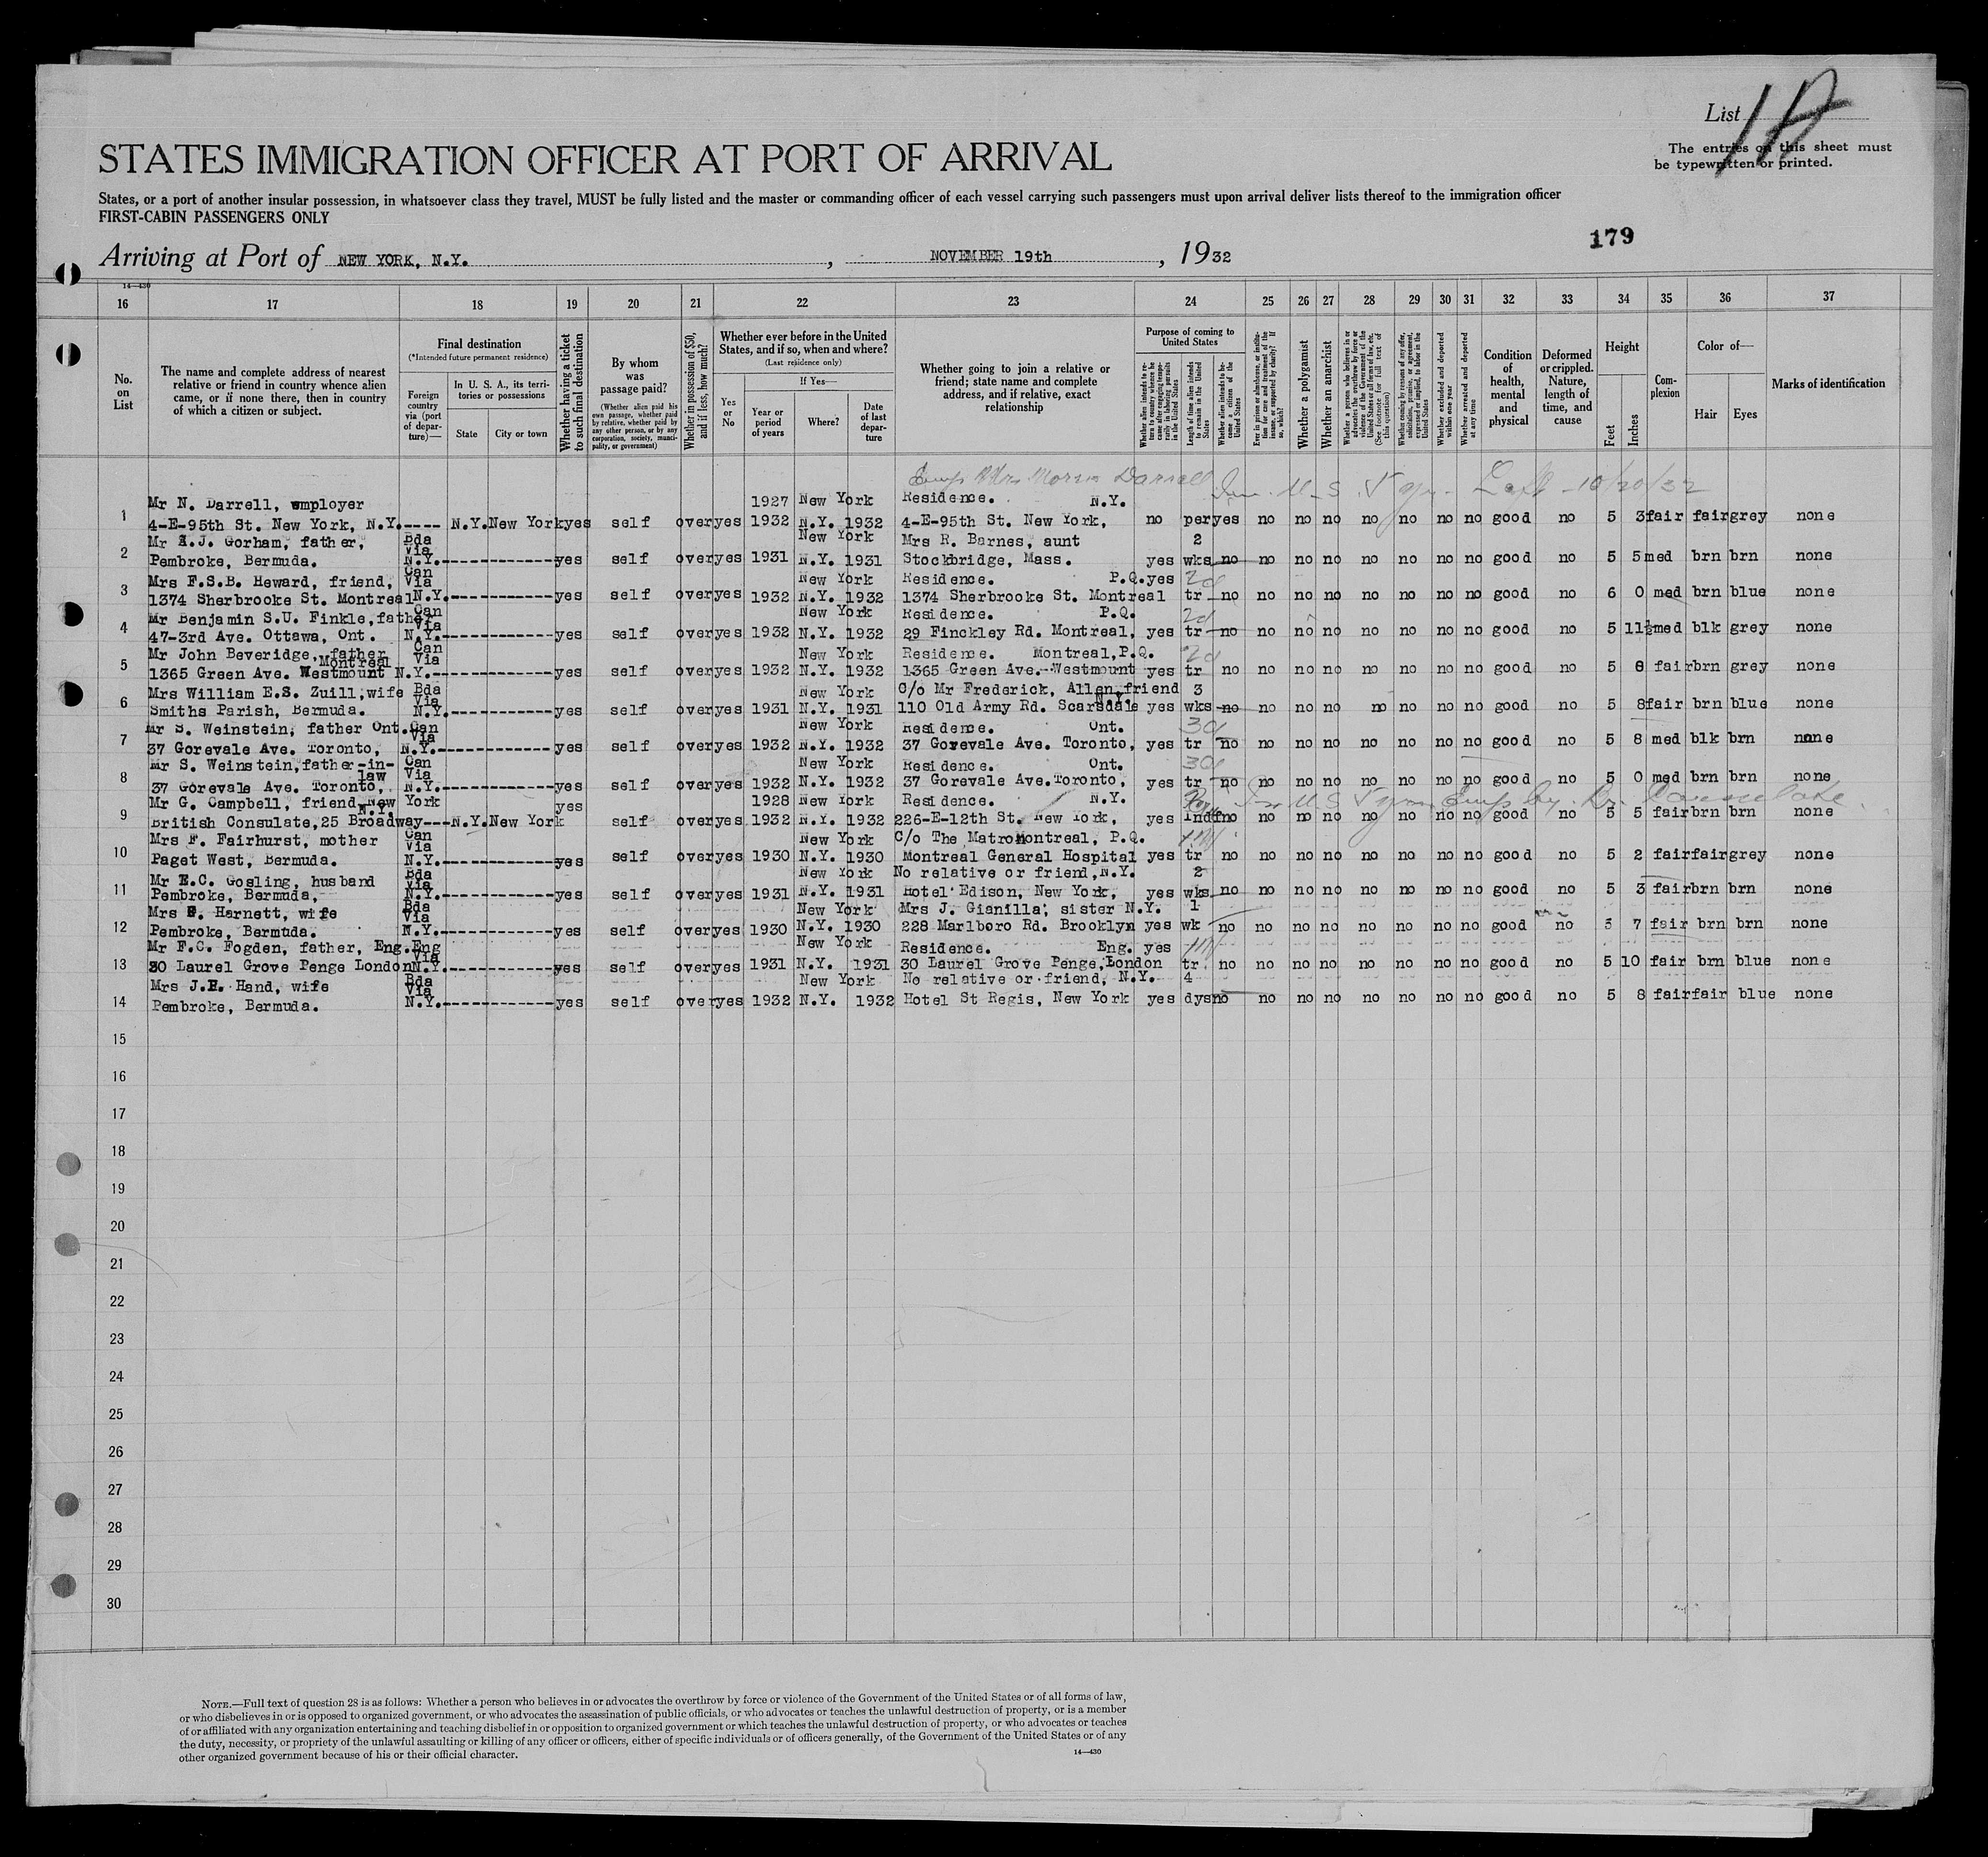 List 1A
The entries on this sheet must
be typewritten or printed.
STATES IMMIGRATION OFFICER AT PORT OF ARRIVAL
States, or a port of another insular possession, in whatsoever class they travel, MUST be fully listed and the master or commanding officer of each vessel carrying such passengers must upon arrival deliver lists thereof to the immigration officer
FIRST-CABIN PASSENGERS ONLY
179
Arriving at Port of NEW YORK, N.Y., NOVEMBER 19th, 1932
14—430
16 17 18 19 20 21 22 23 24 25 26 27 28 29 30 31 32 33 34 35 36 37
No. on List
The name and complete address of nearest relative or friend in country whence alien came, or if none there, then in country of which a citizen or subject.
Final destination
(*Intended future permanent residence)
Foreign country via (port of departure)—
In U. S. A., its territories or possessions
State
City or town
Whether having a ticket to such final destination
By whom was passage paid?
(Whether alien paid his own passage, whether paid by relative, whether paid by any other person, or by any corporation, society, municipality, or government)
Whether in possession of $50, and if less, how much?
Whether ever before in the United States, and if so, when and where?
(Last residence only)
Yes or No
If Yes—
Year or period of years
Where?
Date of last departure
Whether going to join a relative or friend; state name and complete address, and if relative, exact relationship
Purpose of coming to United States
Whether alien intends to return to country whence he came after engaging temporarily in laboring pursuits in the United States
Length of time alien intends to remain in the United States
Whether alien intends to become a citizen of the United States
Ever in prison or almshouse, or institution for care and treatment of the insane, or supported by charity? If so, which?
Whether a polygamist
Whether an anarchist
Whether a person who believes in or advocates the overthrow by force or violence of the Government of the United States or all forms of law, etc. (See footnote for full text of this question)
Whether coming by reasons of any offer, solicitation, promise, or agreement, expressed or implied, to labor in the United States
Whether excluded and deported within one year
Whether arrested and deported at any time
Condition of health, mental and physical
Deformed or crippled. Nature, length of time, and cause
Height
Feet
Inches
Complexion
Color of—
Hair
Eyes
Marks of identification
Darrell U.S. 10/20/32
Mr N. Darrell, employer 1927 New York Residence. N.Y.
1 4-E-95th St. New York, N.Y.---- N.Y. New York yes self over yes 1932 N.Y. 1932 4-E-95th St. New York, no per yes no no no no no no no good no 5 3 fair fair grey none
Mr A.J. Gorham, father, Bda Via New York Mrs R. Barnes, aunt 2
2 Pembroke, Bermuda. N.Y.------------ yes self over yes 1931 N.Y. 1931 Stockbridge, Mass. yes wks no no no no no no no no good no 5 5 med brn brn none
Mrs F.S.B. Heward, friend, Can Via New York Residence. P.Q. yes 2d
3 1374 Sherbrooke St. Montreal N.Y.------------ yes self over yes 1932 N.Y. 1932 1374 Sherbrooke St. Montreal tr no no no no no no no no good no 6 0 med brn blue none
Mr Benjamin S.U. Finkle, father Can Via New York Residence. P.Q. 2d
4 47-3rd Ave. Ottawa, Ont. N.Y.------------ yes self over yes 1932 N.Y. 1932 29 Finckley Rd. Montreal, yes tr no no no no no no no no good no 5 11½ med blk grey none
Mr John Beveridge, father Can Via New York Residence. Montreal, P.Q. 2d
5 1365 Green Ave. Westmount Montreal N.Y.------------ yes self over yes 1932 N.Y. 1932 1365 Green Ave.--Westmount yes tr no no no no no no no no good no 5 8 fair brn grey none
Mrs William E.S. Zuill, wife Bda Via New York C/o Mr Frederick, Allen, friend 3
6 Smiths Parish, Bermuda. N.Y.------------ yes self over yes 1931 N.Y. 1931 110 Old Army Rd. Scarsdale N.Y. yes wks no no no no no no no no good no 5 8 fair brn blue none
Mr S. Weinstein, father Ont. Can Via New York Residence. Ont. 30d
7 37 Gorevale Ave. Toronto, N.Y.------------ yes self over yes 1932 N.Y. 1932 37 Gorevale Ave. Toronto, yes tr no no no no no no no no good no 5 8 med blk brn none
Mr S. Weinstein, father-in-law Can Via New York Residence. Ont. 30d
8 37 Gorevale Ave. Toronto, N.Y.------------ yes self over yes 1932 N.Y. 1932 37 Gorevale Ave. Toronto, yes tr no no no no no no no no good no 5 0 med brn brn none
Mr G. Campbell, friend, New York N.Y. yes 1928 New York Residence. N.Y. U.S. Consulate.
9 British Consulate, 25 Broadway---N.Y. New York self over yes 1932 N.Y. 1932 226-E-12th St. New York, yes Indf no no no no no no no no good no 5 5 fair brn brn none
Mrs F. Fairhurst, mother Can Via New York C/o The Matron Montreal, P.Q.
10 Paget West, Bermuda. N.Y.------------ yes self over yes 1930 N.Y. 1930 Montreal General Hospital yes tr no no no no no no no no good no 5 2 fair fair grey none
Mr E.C. Gosling, husband Bda Via New York No relative or friend, N.Y. 2
11 Pembroke, Bermuda, N.Y.------------ yes self over yes 1931 N.Y. 1931 Hotel Edison, New York, yes wks no no no no no no no no good no 5 3 fair brn brn none
Mrs F. Harnett, wife Bda Via New York Mrs J. Gianilla, sister N.Y. 1
12 Pembroke, Bermuda. N.Y.------------ yes self over yes 1930 N.Y. 1930 228 Marlboro Rd. Brooklyn yes wk no no no no no no no no good no 5 7 fair brn brn none
Mr F.C. Fogden, father, Eng. Eng Via New York Residence. Eng. yes
13 30 Laurel Grove Penge London N.Y.------------ yes self over yes 1931 N.Y. 1931 30 Laurel Grove Penge, London tr. no no no no no no no no good no 5 10 fair brn blue none
Mrs J.E. Hand, wife Bda Via New York No relative or friend, N.Y. 4
14 Pembroke, Bermuda. N.Y.------------ yes self over yes 1932 N.Y. 1932 Hotel St Regis, New York yes dys no no no no no no no no good no 5 8 fair fair blue none
15
16
17
18
19
20
21
22
23
24
25
26
27
28
29
30
NOTE.—Full text of question 28 is as follows: Whether a person who believes in or advocates the overthrow by force or violence of the Government of the United States or of all forms of law,
or who disbelieves in or is opposed to organized government, or who advocates the assassination of public officials, or who advocates or teaches the unlawful destruction of property, or is a member
of or affiliated with any organization entertaining and teaching disbelief in or opposition to organized government or which teaches the unlawful destruction of property, or who advocates or teaches
the duty, necessity, or propriety of the unlawful assaulting or killing of any officer or officers, either of specific individuals or of officers generally, of the Government of the United States or of any
other organized government because of his or their official character.
14—430